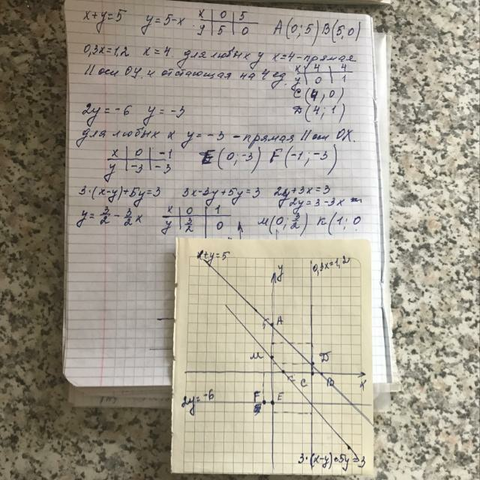 x+y=5 y=5-x x | 0 | 5 A(0;5) B(5;0)
y | 5 | 0
0,3x=1,2 x=4 для любых y x=4-прямая
|| оси OY, и отстающая на 4 ед. x | 4 | 4
y | 0 | 1
C(4;0)
2y=-6 y=-3 D(4;1)
для любых x y=-3 - прямая || оси OX.
x | 0 | -1 E(0;-3) F(-1;-3)
y | -3 | -3
3·(x-y)+5y=3 3x-3y+5y=3 2y+3x=3
2y=3-3x
y=3/2-3/2x x | 0 | 1 M(0;3/2) K(1;0
y | 3/2 | 0
x+y=5 y 0,3x=1,2
5 A
M D
C B x
2y=-6 F E
3·(x-y)+5y=3